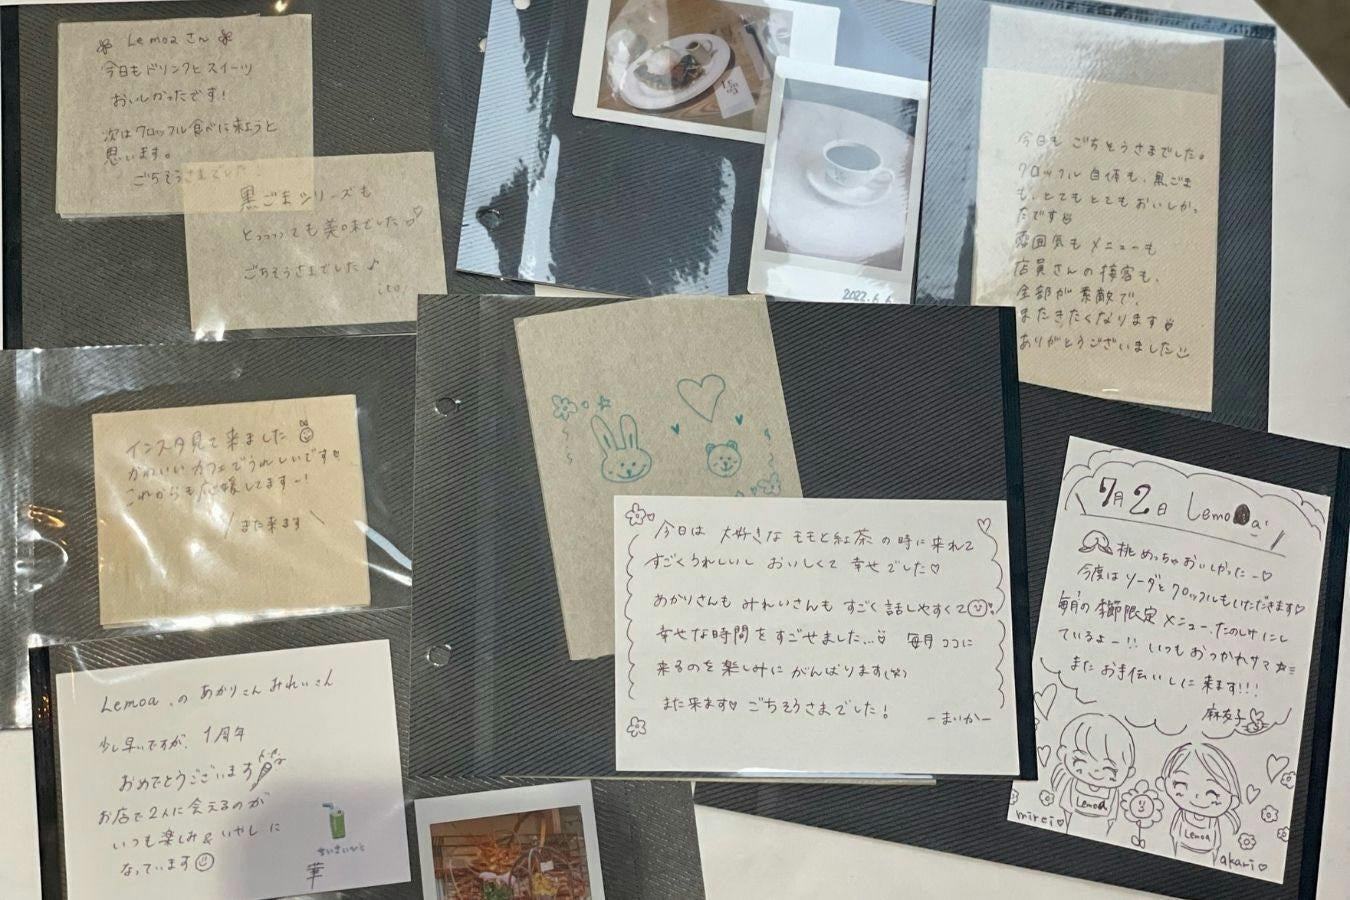 Lemoaさん
今日もドリンクとスイーツ
おいしかったです!
次はクロッフル食べに来ようと
思います。
ごちそうさまでした
黒ごまシリーズも
とっっっても美味でした♡
ごちそうさまでした♪
ito.
2022.6.6
今日も ごちそうさまでした。
クロッフル自体も、黒ごま
も、とてもとてもおいしかっ
たです
雰囲気も メニューも
店員さんの接客も、
全部が素敵で、
またきたくなります
ありがとうございました
インスタ見て来ました
かわいいカフェでうれしいです
これからも応援してますー!
\また来ます/
今日は 大好きな ももと紅茶 の時に来れて
すごくうれしいし おいしくて 幸せでした♡
あかりさんも みれいさんも すごく話しやすくて
幸せな時間をすごせました... 毎月ココに
来るのを楽しみに がんばります
また来ます♡ ごちそうさまでした!
ーまいかー
7月2日 Lemoa
桃めっちゃおいしかったー♡
今度はソーダとクロッフルもいただきます♡
毎月の季節限定メニュー、たのしみにし
ているよー!! いつもおつかれサマ
またお手伝いしに来ます!!!
麻友子
Lemoa
mirei♡
Lemoa
akari♡
Lemoa.の あかりさん みれいさん
少し早いですが、1周年
おめでとうございます
お店で2人に会えるのが
いつも楽しみ&いやしに
なっています
華